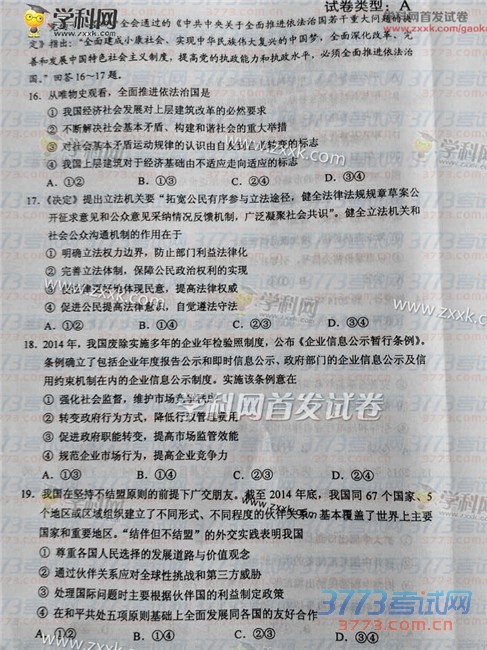 学科网 试卷类型：A
全会通过的《中共中央关于全面推进依法治国若干重大问题
www.zxxk.com
www.3773.com/gaokao
定》指出：“全面建成小康社会、实现中华民族伟大复兴的中国梦，全面深化改革、完
善和发展中国特色社会主义制度，提高党的执政能力和执政水平，必须全面推进依法治
国。”回答16～17题。
16．从唯物史观看，全面推进依法治国是
① 我国经济社会发展对上层建筑改革的必然要求
② 不断解决社会基本矛盾、构建和谐社会的重大举措
③ 对社会基本矛盾运动规律的认识由自发到自觉转变的标志
④ 我国上层建筑对于经济基础由不适应走向适应的标志
A．①② B．①③ C．②④ D．③④
17．《决定》提出立法机关要“拓宽公民有序参与立法途径，健全法律法规规章草案公
开征求意见和公众意见采纳情况反馈机制，广泛凝聚社会共识”。健全立法机关和
社会公众沟通机制的作用在于
① 明确立法权力边界，防止部门利益法律化
② 完善立法体制，保障公民政治权利的实现
③ 使法律更好地体现民意，提高法律权威
④ 促进公民提高法律意识，自觉遵守守法
A．①② B．①③ C．②④ D．③④
18．2014年，我国废除实施多年的企业年检验照制度，公布《企业信息公示暂行条例》。
条例确立了包括企业年度报告公示和即时信息公示、政府部门的企业信息公示及信
用约束机制在内的企业信息公示制度。实施该条例意在
① 强化社会监督，维护市场
② 转变政府行为方式，降低行政管理费用
③ 促进政府职能转变，提高市场监管效能
④ 规范企业市场行为，提高企业竞争力
A．①③ B．①④ C．②③ D．②④
学科网首发试卷
19．我国在坚持不结盟原则的前提下广交朋友。截至2014年底，我国同67个国家、5
个地区或区域组织建立了不同形式、不同程度的伙伴关系，基本覆盖了世界上主要
国家和重要地区。“结伴但不结盟”的外交实践表明我国
① 尊重各国人民选择的发展道路与价值观念
② 通过伙伴关系应对全球性挑战和第三方威胁
③ 处理国际问题时主要根据伙伴国的利益制定政策
④ 在和平共处五项原则基础上全面发展同各国的友好合作
A．①② B．①④ C．②③ D．③④
3773考试网
www.3773.com.cn